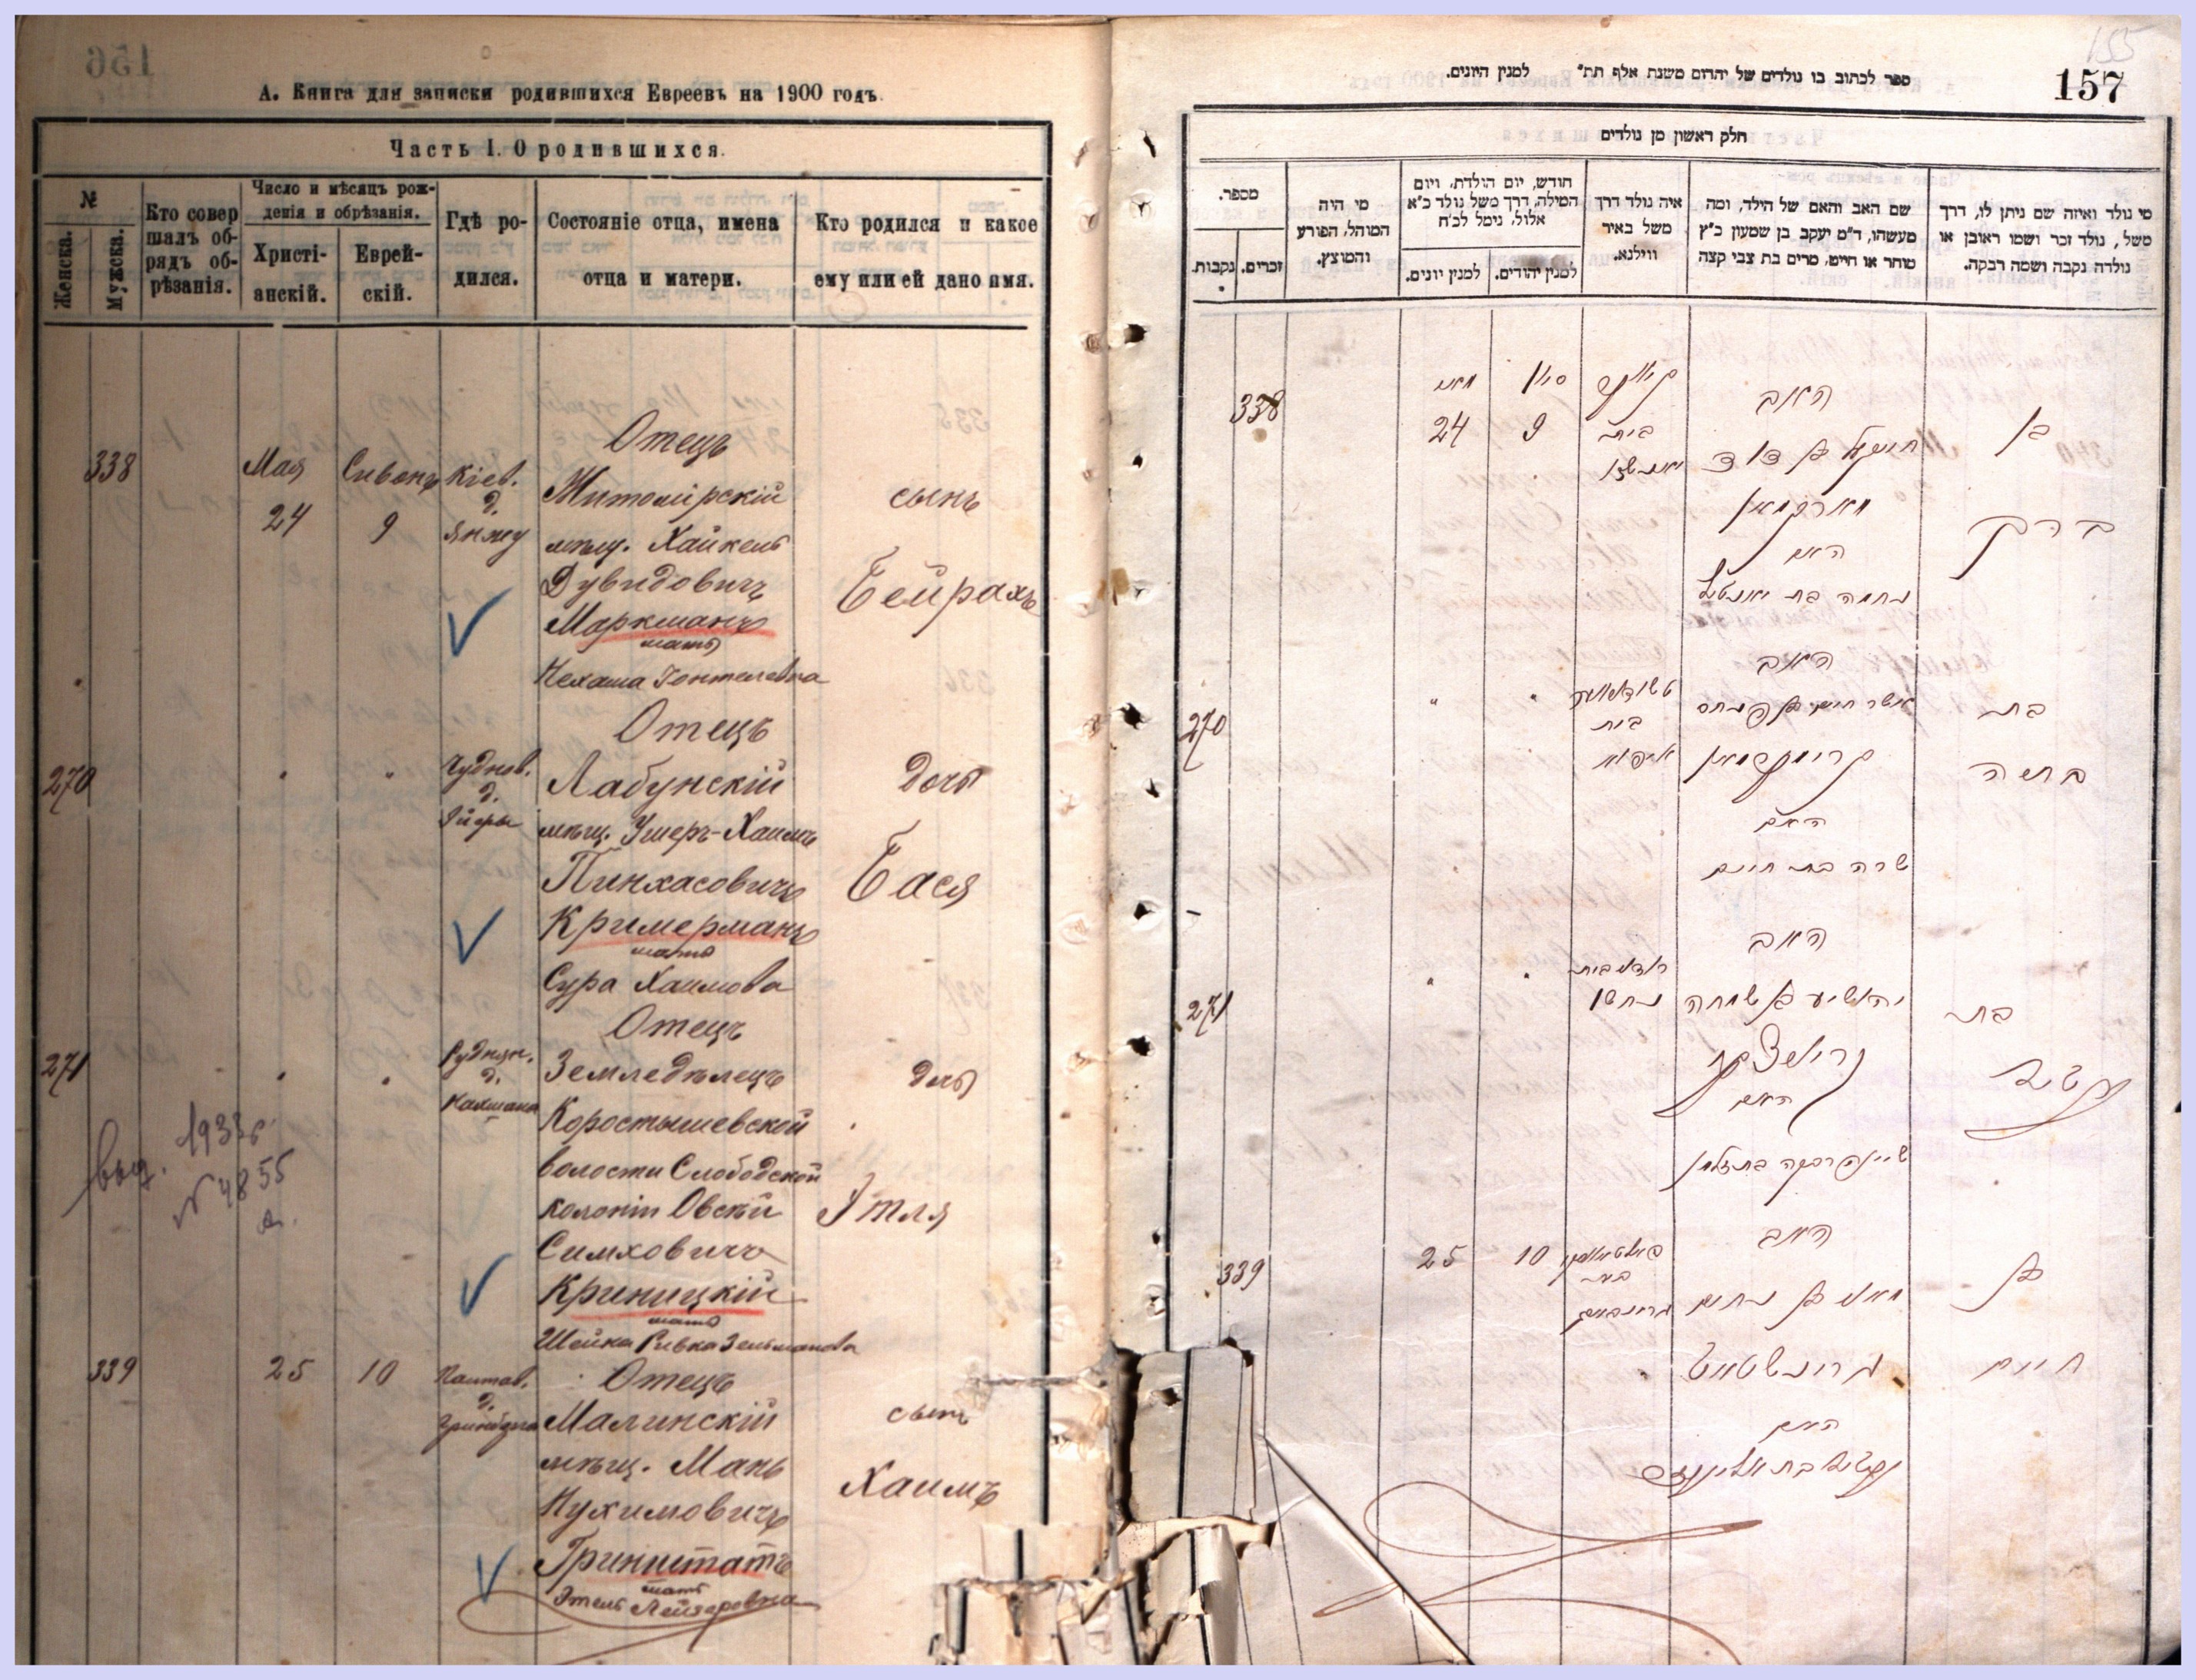 156
А. Книга для записки родившихся Евреевъ на 1900 годъ.
Часть I. О родившихся.
№
Женска.
Мужска.
Кто совер
шалъ об-
рядъ об-
рѣзанія.
Число и мѣсяцъ рож-
денія и обрѣзанія.
Христі-
анскій.
Еврей-
скій.
Гдѣ ро-
дился.
Состояніе отца, имена
отца и матери.
Кто родился и какое
ему или ей дано имя.
338
Мая
24
Сивонъ
9
Кіев.
д.
Янжу
Отецъ
Житомірскій
мѣщ. Хайкель
Дувидовичъ
Маркманъ
мать
Нехама Іонтелевна
сынъ
Бейрахъ
270
"
"
Чуднов.
д.
Отецъ
Лабунскій
мѣщ. Ушеръ-Хаимъ
Пинхасовичъ
Кримерманъ
мать
Сура Хаимова
дочь
Бася
271
"
"
Руднян.
д.
Нахмана
Отецъ
Земледѣлецъ
Коростышевской
волости Слободской
колоніи Овсѣй
Симховичъ
Криницкій
мать
Шейна Ривка Зельманова
дочь
Этля
выд. 1933г.
№ 4855
339
25
10
д.
Отецъ
Малинскій
мѣщ. Мань
Нухимовичъ
Гринштатъ
мать
Этель Лейзеровна
сынъ
Хаимъ
155
157
ספר לכתוב בו נולדים של יהדום משנת אלף תת״ למנין היונים.
חלק ראשון מן נולדים
מספר.
נקבות.
זכרים.
מי היה
המוהל, הפורע
והמוצץ.
חודש, יום הולדת, ויום
המילה, דרך משל נולד כ״א
אלול, נימל לכ״ח
למנין יונים.
למנין יהודים.
איה נולד דרך
משל באיר
ווילנא.
שם האב והאם של הילד, ומה
מעשהו, ד״מ יעקב בן שמעון כ״ץ
סוחר או חייט, מרים בת צבי קצה
מי נולד ואיזה שם ניתן לו, דרך
משל, נולד זכר ושמו ראובן או
נולדה נקבה ושמה רבקה.
338
מאי
24
סיון
9
בית
האב
חייקל בן דוד
מארקמאן
האם
נחמה בת
בן
ברך
270
"
"
בית
האב
אשר חיים בן פנחס
קרימערמאן
האם
שרה בת חיים
בת
באשה
271
"
"
האב
יהושיע בן שמחה
קריניצקי
האם
שיינע רבקה בת זלמן
בת
עטיל
339
25
10
בית
האב
מאני בן נחום
גרינשטאט
האם
עטיל בת אליעזר
בן
חיים